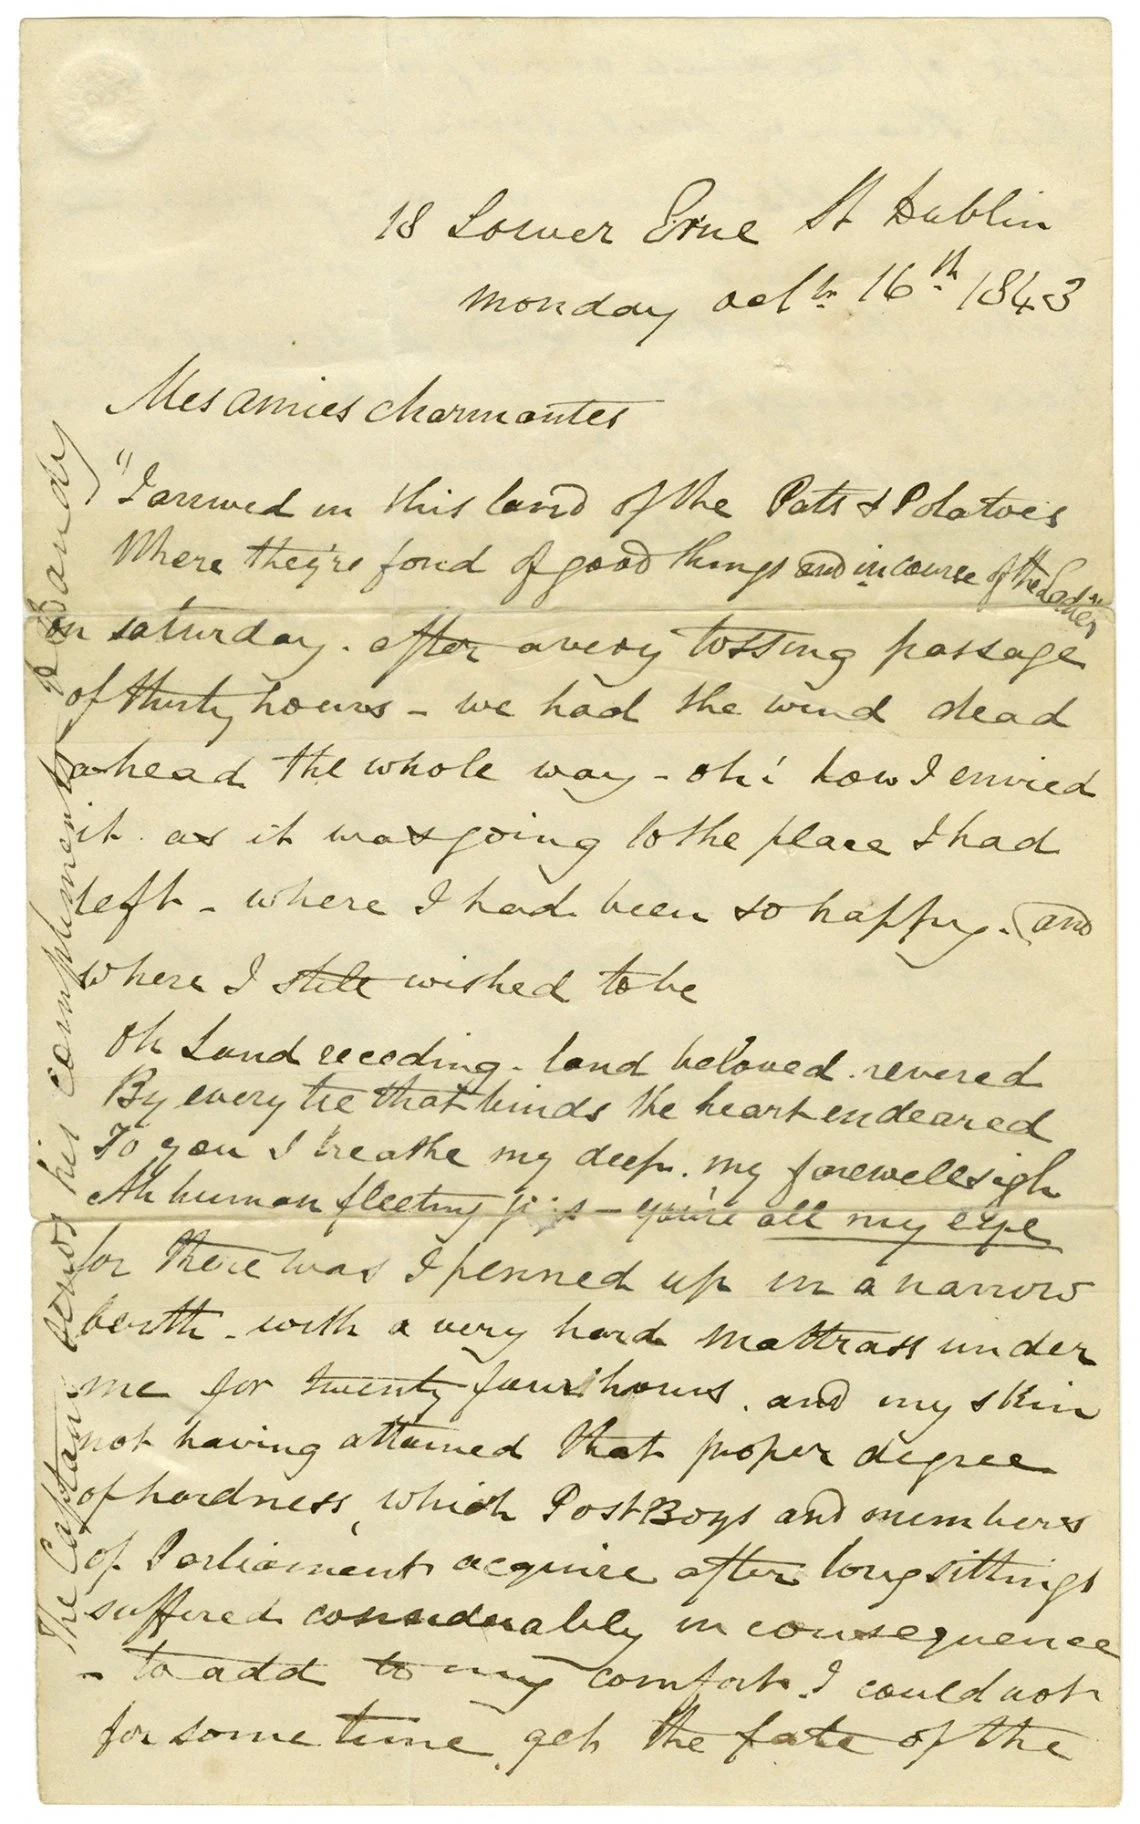 18 Lower Erne St Dublin
Monday Octbr 16th 1843
Mes Amies charmantes
"I arrived in this land of the Patts & Potatoes
Where they're fond of good things and in course of the Ladies"
on saturday. after a very tossing passage
of thirty hours - we had the wind dead
a head the whole way - oh! how I envied
it as it was going to the place I had
left - where I had been so happy. (and
where I still wished to be
Oh Land receding - land beloved. revered
By every tie that binds the heart endeared
To you I breathe my deep. my farewell sigh
Ah human fleeting joys - you're all my eye
for there was I penned up in a narrow
berth - with a very hard mattrass under
me for twenty four hours. and my skin
not having attained that proper degree
of hardness, which Post Boys and members
of Parliament acquire after long sittings
suffered considerably in consequence
- to add to my comfort. I could not
for some time, get the fate of the
The Captain sends his compliments to